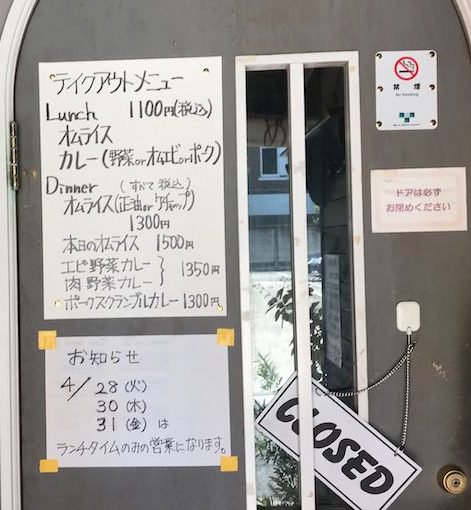 テイクアウトメニュー
Lunch 1100円(税込)
オムライス
カレー(野菜orオムエビorポーク)
Dinner (すべて税込)
オムライス(正油orケチャップ)
1300円
本日のオムライス 1500円
エビ野菜カレー
肉野菜カレー } 1350円
ポークスクランブルカレー 1300円
お知らせ
4/28(火)
30(木)
31(金)は
ランチタイムのみの営業になります。
禁煙
No Smoking
ドアは必ず
お閉めください
CLOSED